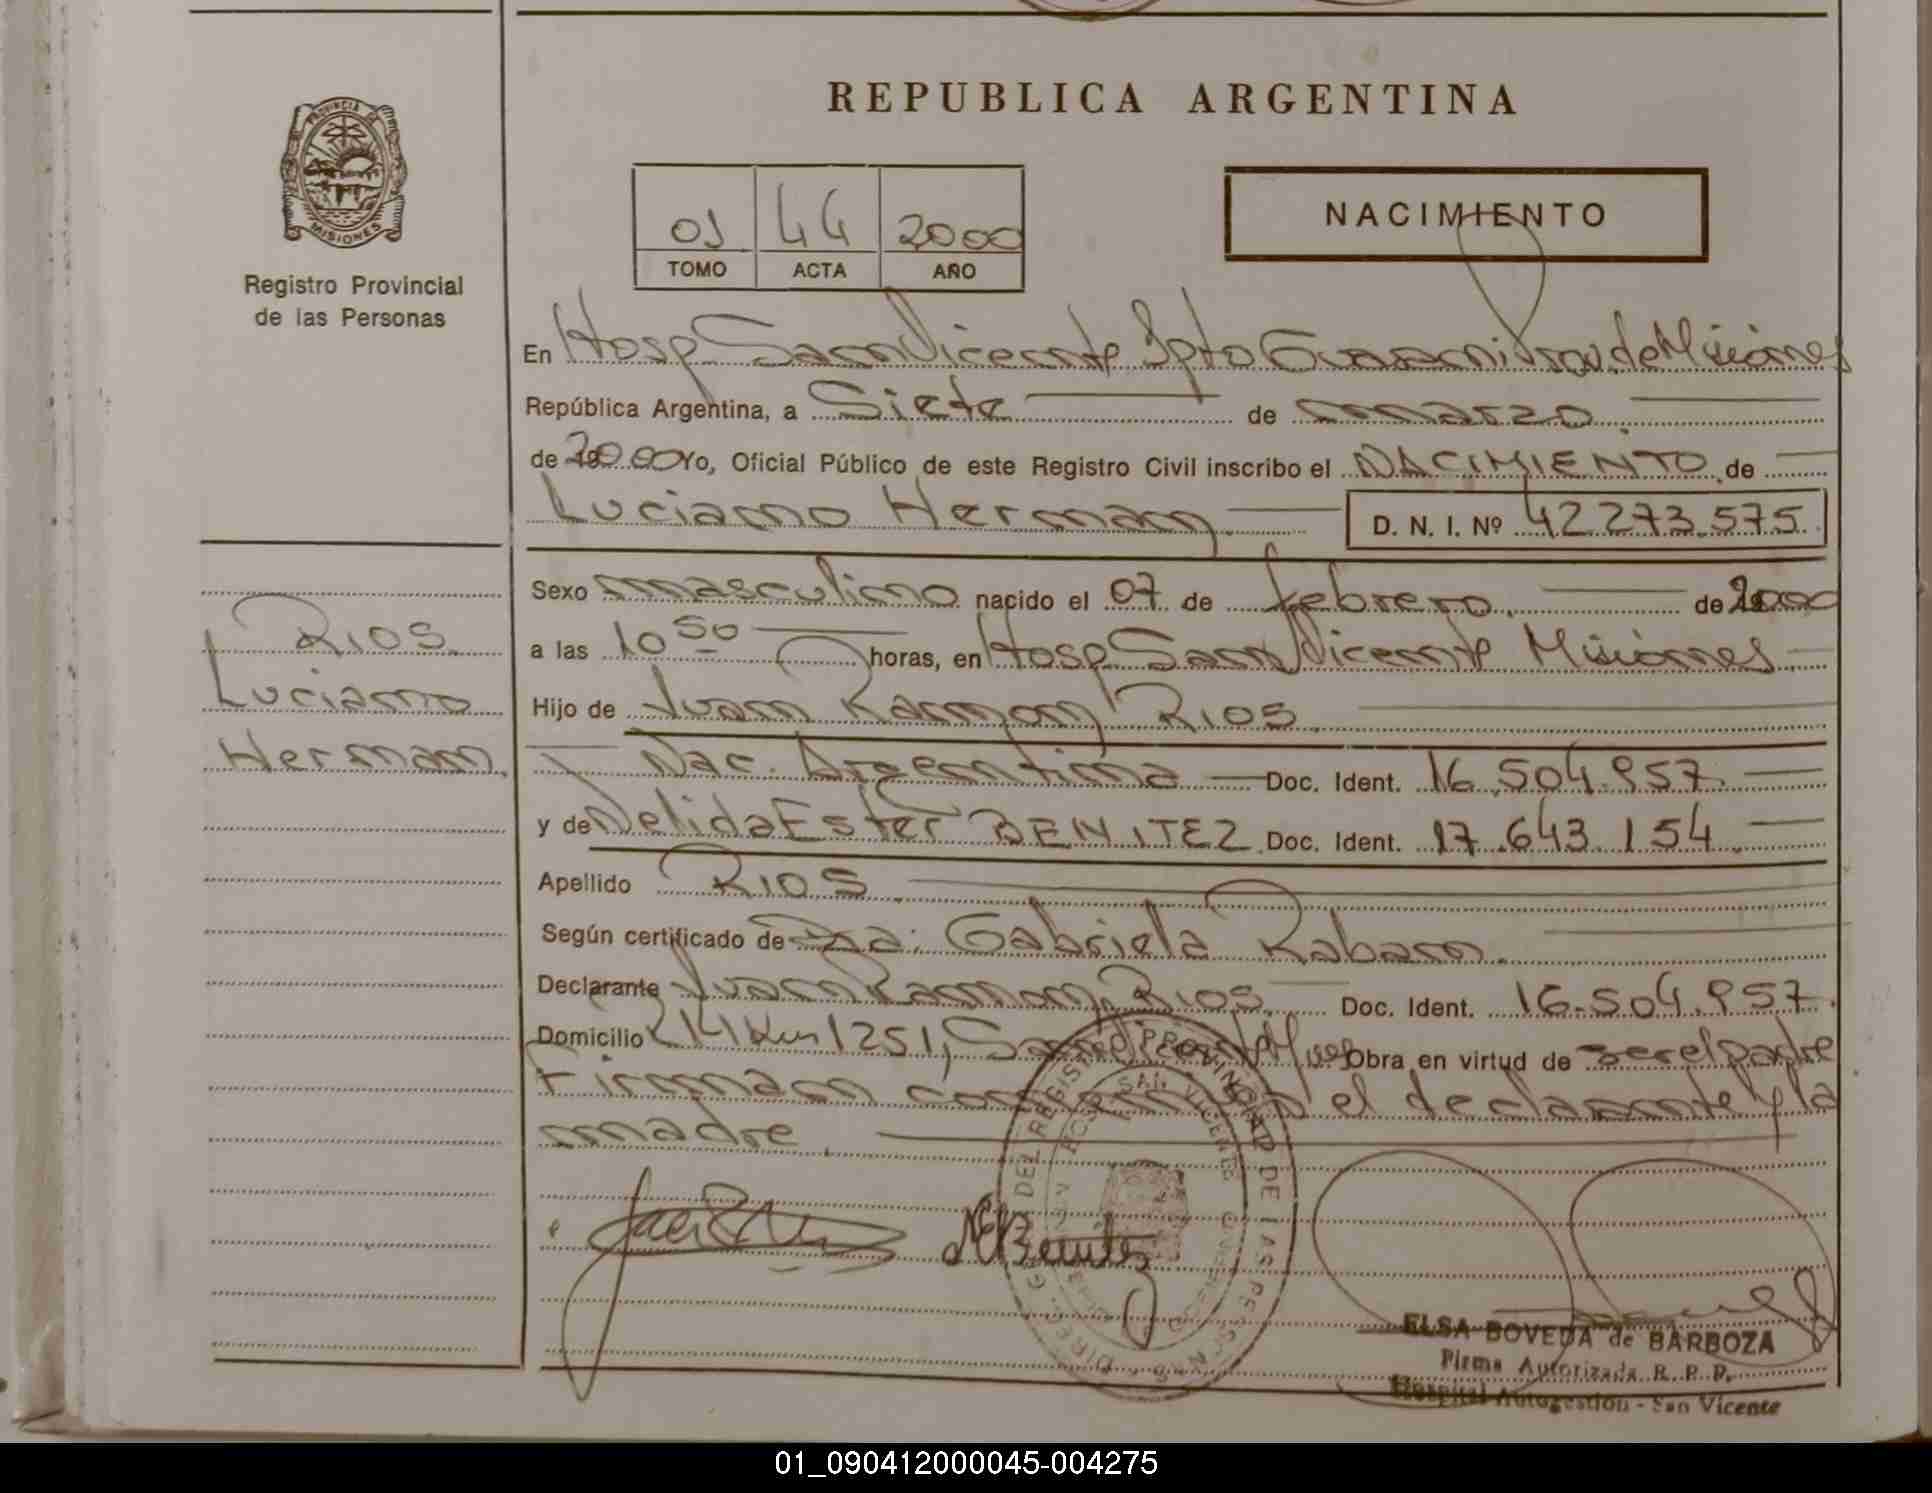 REPUBLICA ARGENTINA
PROVINCIA DE
MISIONES
Registro Provincial
de las Personas
01 44 2000
TOMO ACTA AÑO
NACIMIENTO
En Hosp San Vicente Dpto Guarani Prov. de Misiones
República Argentina, a Siete de marzo
de 2000 Yo, Oficial Público de este Registro Civil inscribo el NACIMIENTO de
Luciano Hernan D. N. I. Nº 42273.575.
Sexo masculino nacido el 07 de febrero. de 2000
a las 10 50 horas, en Hosp San Vicente Misiones
Hijo de Juan Ramon RIOS
Nac. Argentina Doc. Ident. 16.504.957.
y de Nelida Ester BENITEZ. Doc. Ident. 17.643.154.
Apellido RIOS.
Según certificado de Dra. Gabriela Raban.
Declarante Juan Ramon RIOS. Doc. Ident. 16.504.957.
Domicilio Km 1251, San Vicente Obra en virtud de ser el padre
Firman el declarante y la
madre.
RIOS.
Luciano
Hernan.
DEL REGISTRO PROVINCIAL DE LAS PERSONAS
SAN VICENTE
N E Benitez
ELSA BOVEDA de BARBOZA
Firma Autorizada R. P. P.
Hospital Autogestión - San Vicente
01_090412000045-004275